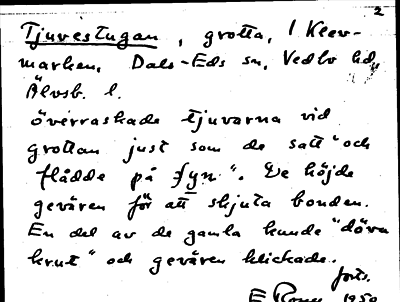 2
Tjuvestugan, grotta, i Keev-
marken, Dals-Eds sn, Vedbo hd,
Älvsb. l.
överraskade tjuvarna vid
grottan just som de satt "och
flådde på fyn". De höjde
gevären för att skjuta bonden.
En del av de gamla kunde "döva
krut" och gevären klickade.
forts.
E 1950